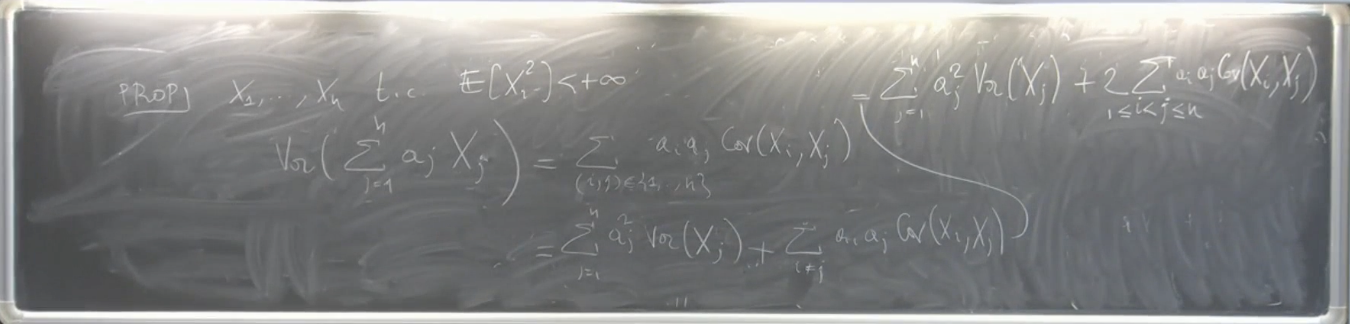 PROP] X_1, ..., X_n t.c. E[X_i^2] < +∞
Var(∑_{j=1}^{n} a_j X_j) = ∑_{(i,j)∈{1,...,n}} a_i a_j Cov(X_i, X_j)
= ∑_{j=1}^{n} a_j^2 Var(X_j) + ∑_{i≠j} a_i a_j Cov(X_i, X_j)
= ∑_{j=1}^{n} a_j^2 Var(X_j) + 2 ∑_{1≤i<j≤n} a_i a_j Cov(X_i, X_j)